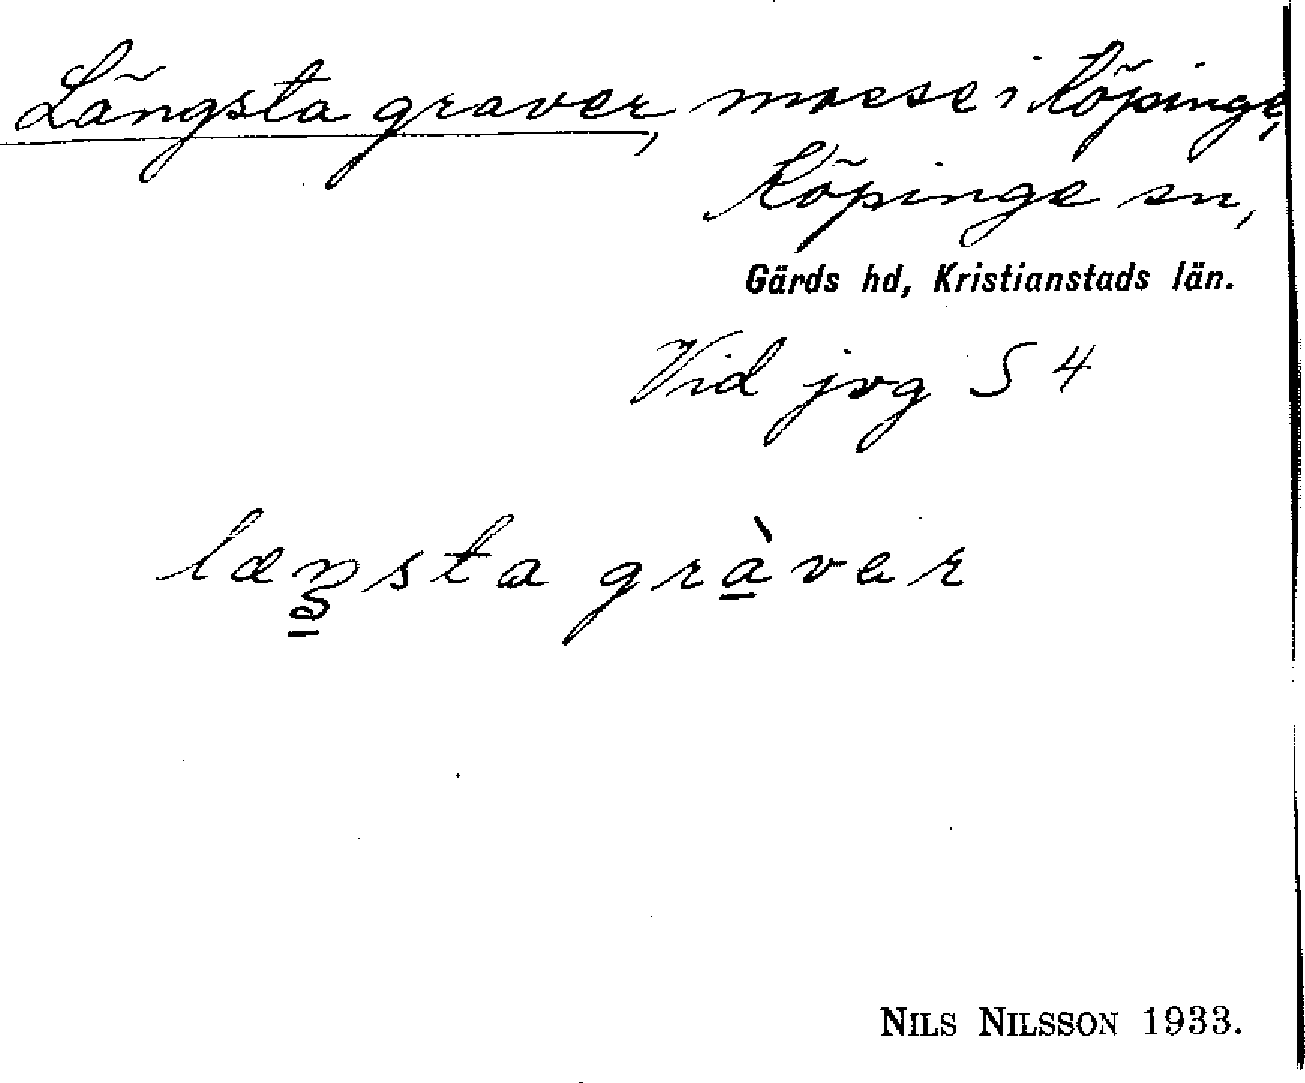 Längsta graver, mosse i Köpinge,
Köpinge sn,
Gärds hd, Kristianstads län.
Vid jvg S 4
læŋsta gràver
NILS NILSSON 1933.